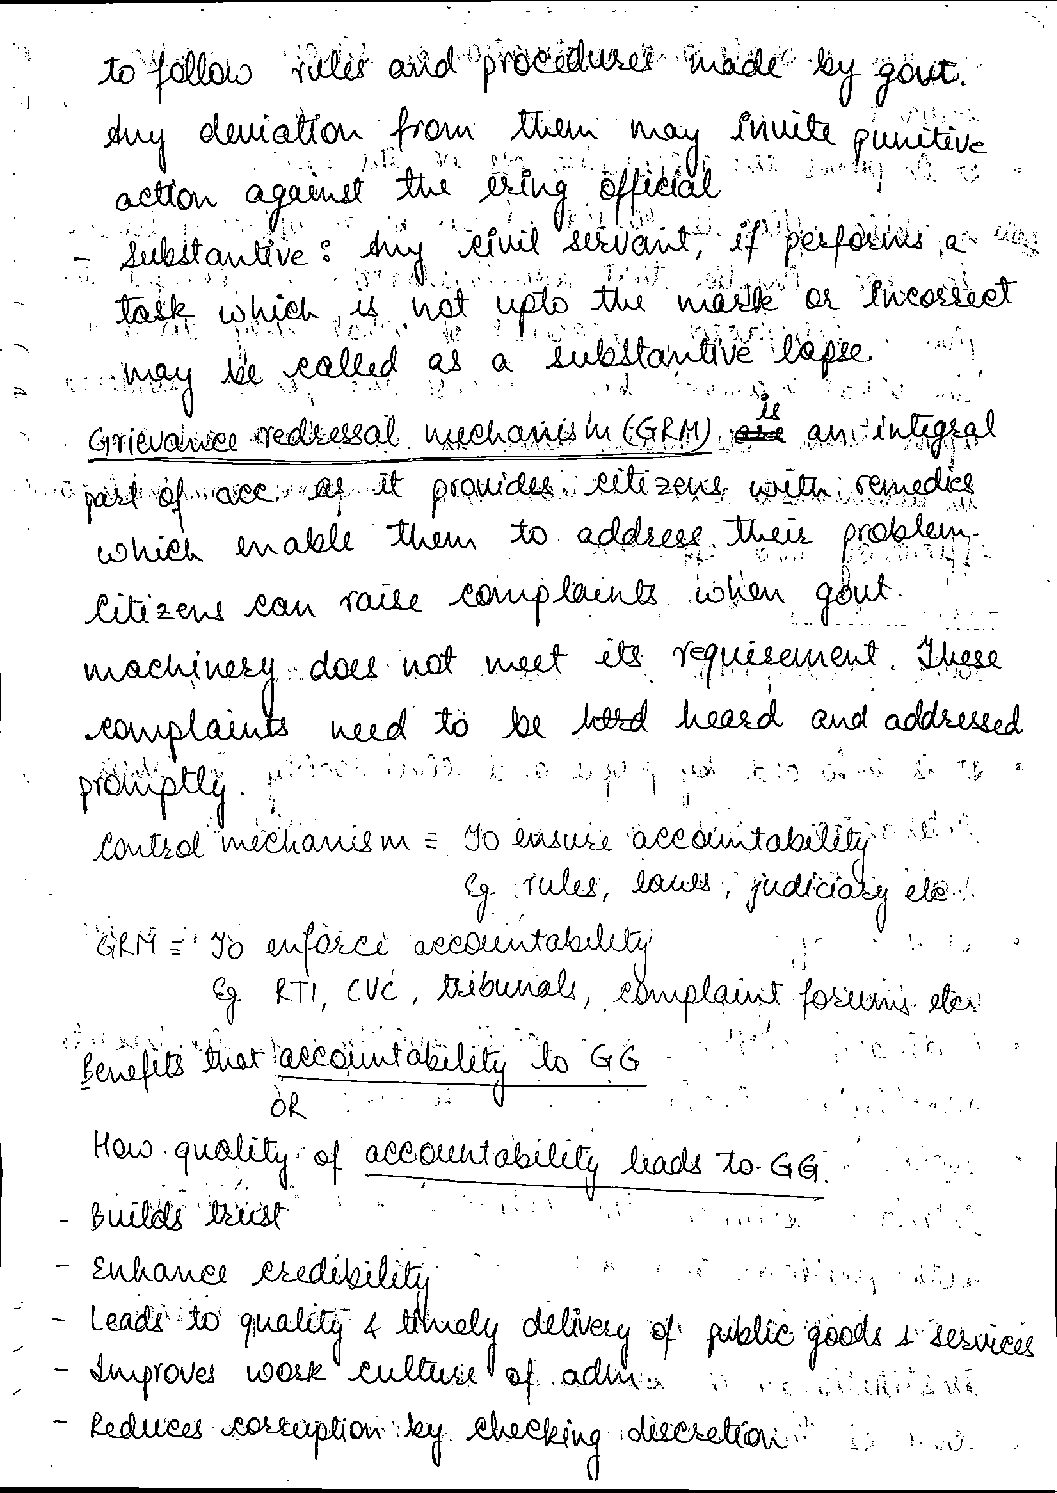 to follow rules and procedures made by govt.
Any deviation from them may invite punitive
action against the ering official
- Substantive : Any civil servant, if performs a
task which is not upto the mark or incorrect
may be called as a substantive lapse.
Grievance redressal mechanism (GRM) is an integral
part of acc as it provides citizens with remedies
which enable them to address their problem.
Citizens can raise complaints when govt.
machinery does not meet its requirement. These
complaints need to be heard and addressed
promptly.
Control mechanism = To ensure accountability
Eg rules, laws, judiciary etc.
GRM = To enforce accountability
Eg RTI, CVC, tribunals, complaint forums etc.
Benefits that accountability to GG
OR
How quality of accountability leads to GG.
- Builds trust
- Enhance credibility
- Leads to quality & timely delivery of public goods & services
- Improves work culture of admn
- Reduces corruption by checking discretion